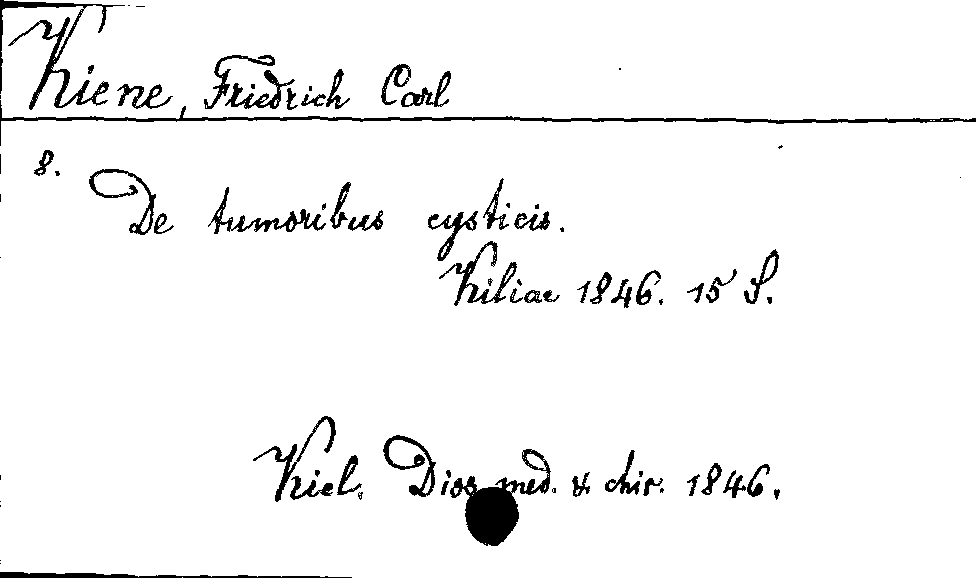 Kiene, Friedrich Carl
8.
De tumoribus cysticis.
Kiliae 1846. 15 S.
Kiel. Diss. med. & chir. 1846.